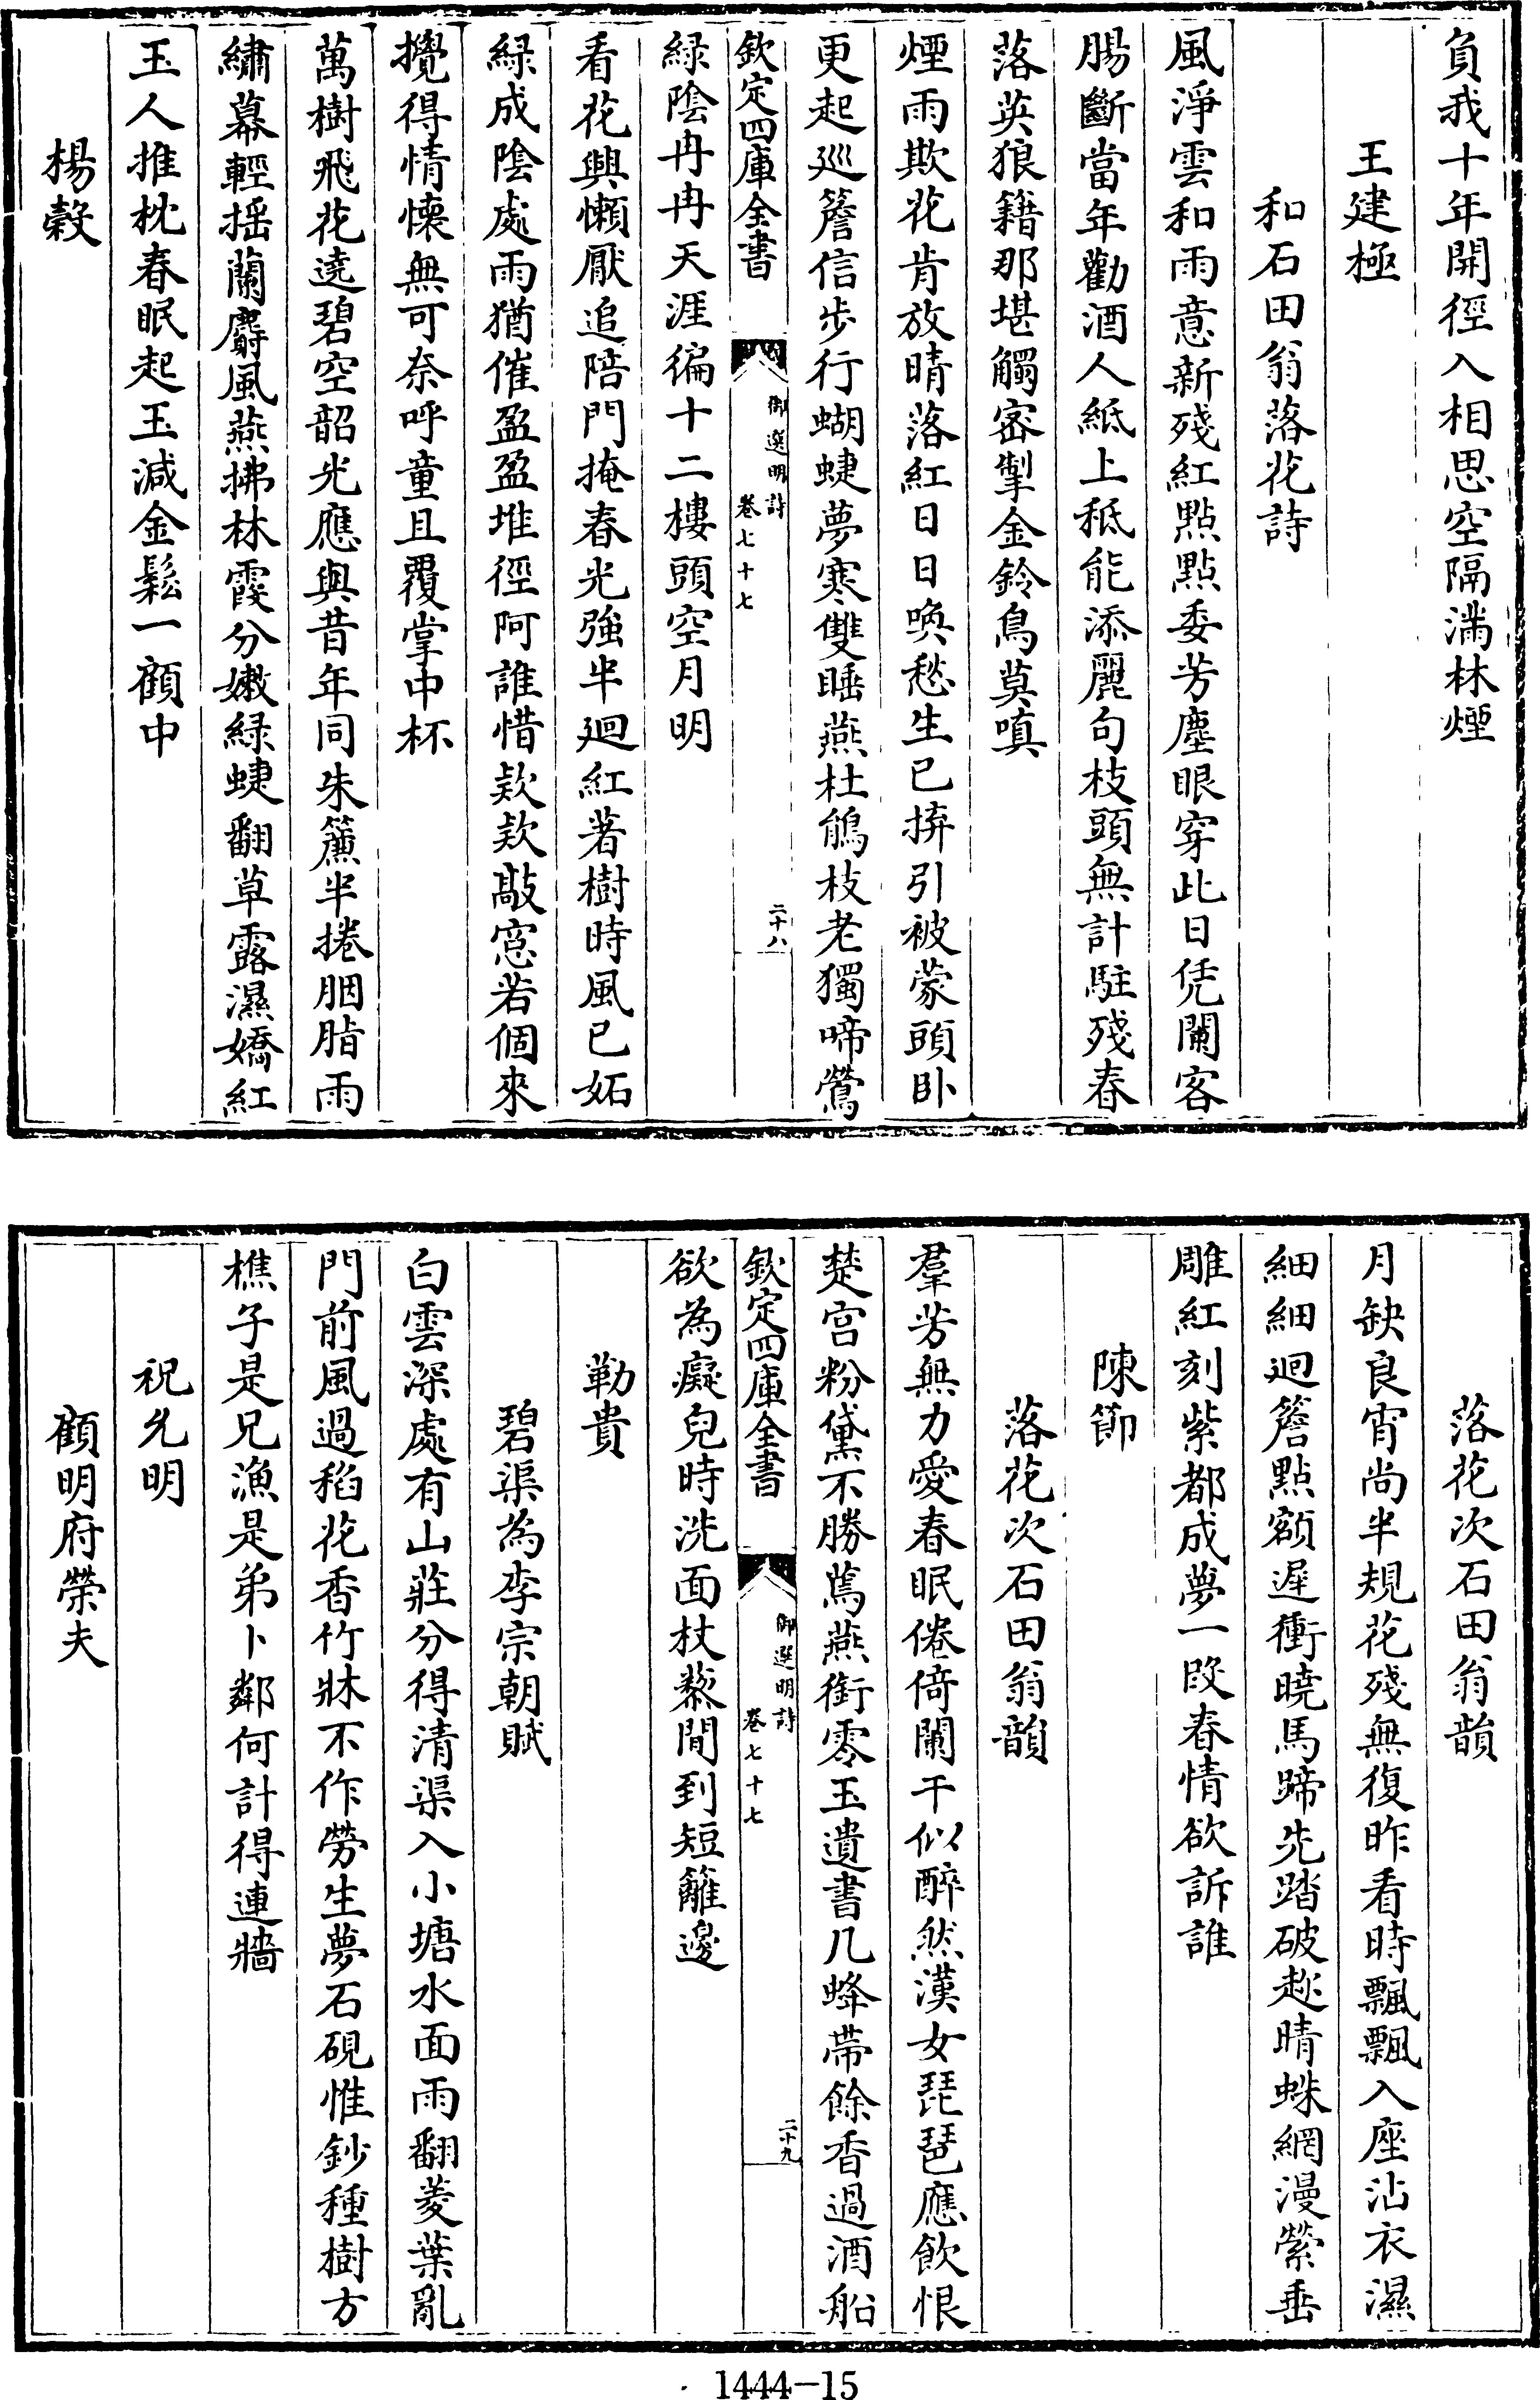 負我十年開徑入相思空隔滿林煙
王建極
和石田翁落花詩
風淨雲和雨意新殘紅點點委芳塵眼穿此日凭闌客
腸斷當年勸酒人紙上秪能添麗句枝頭無計駐殘春
落英狼籍那堪觸密掣金鈴鳥莫嗔
煙雨欺花肯放晴落紅日日喚愁生已拚引被蒙頭卧
更起巡簷信步行蝴蜨夢寒雙睡燕杜鵑枝老獨啼鶯
欽定四庫全書
御選明詩
卷七十七
二十八
緑陰冉冉天涯徧十二樓頭空月明
看花興懶厭追陪門掩春光強半迴紅著樹時風已妬
緑成陰處雨猶催盈盈堆徑阿誰惜欵欵敲窓若個來
攪得情懷無可奈呼童且覆掌中杯
萬樹飛花遶碧空韶光應與昔年同朱簾半捲胭脂雨
繡幕輕揺蘭麝風燕拂林霞分嫩緑蜨翻草露濕嬌紅
玉人推枕春眠起玉減金鬆一顧中
楊榖
落花次石田翁韻
月缺良宵尚半規花殘無復昨看時飄飄入座沾衣濕
細細迴簷點額遲衝曉馬蹄先踏破趂晴蛛網漫縈垂
雕紅刻紫都成夢一段春情欲訴誰
陳節
落花次石田翁韻
羣芳無力愛春眠倦倚闌干似醉然漢女琵琶應飲恨
楚宮粉黛不勝蔫燕銜零玉遺書几蜂帶餘香過酒船
欽定四庫全書
御選明詩
卷七十七
二十九
欲為癡兒時洗面杖藜間到短籬邊
靳貴
碧渠為李宗朝賦
白雲深處有山莊分得清渠入小塘水面雨翻菱葉亂
門前風過稻花香竹牀不作勞生夢石硯惟鈔種樹方
樵子是兄漁是弟卜鄰何計得連牆
祝允明
顧明府榮夫
1444-15